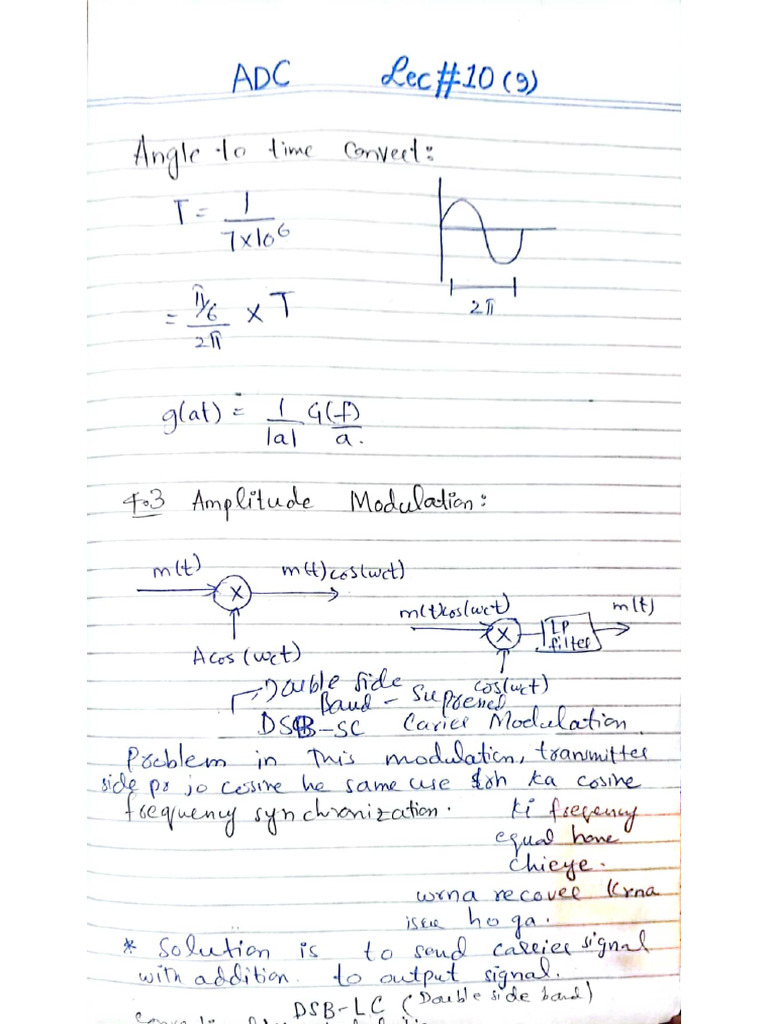 ADC Lec#10(9)
Angle to time convert:
T = 1 / 7x10^6
2π
= π/6 / 2π x T
g(at) = 1/|a| G(f)/a.
4.3 Amplitude Modulation:
m(t) m(t)cos(wct)
X
Acos(wct)
m(t)cos(wct) m(t)
X LP filter
cos(wct)
Double side
Band - Supressed
DSB-SC Carier Modulation
Problem in This modulation, transmitter
side pr jo cosine he same use ka cosine
frequency synchronization. ki freqency
equal hone
chieye.
wrna recover krna
ho ga.
* Solution is to send carrier signal
with addition to output signal.
DSB-LC (Double side band)